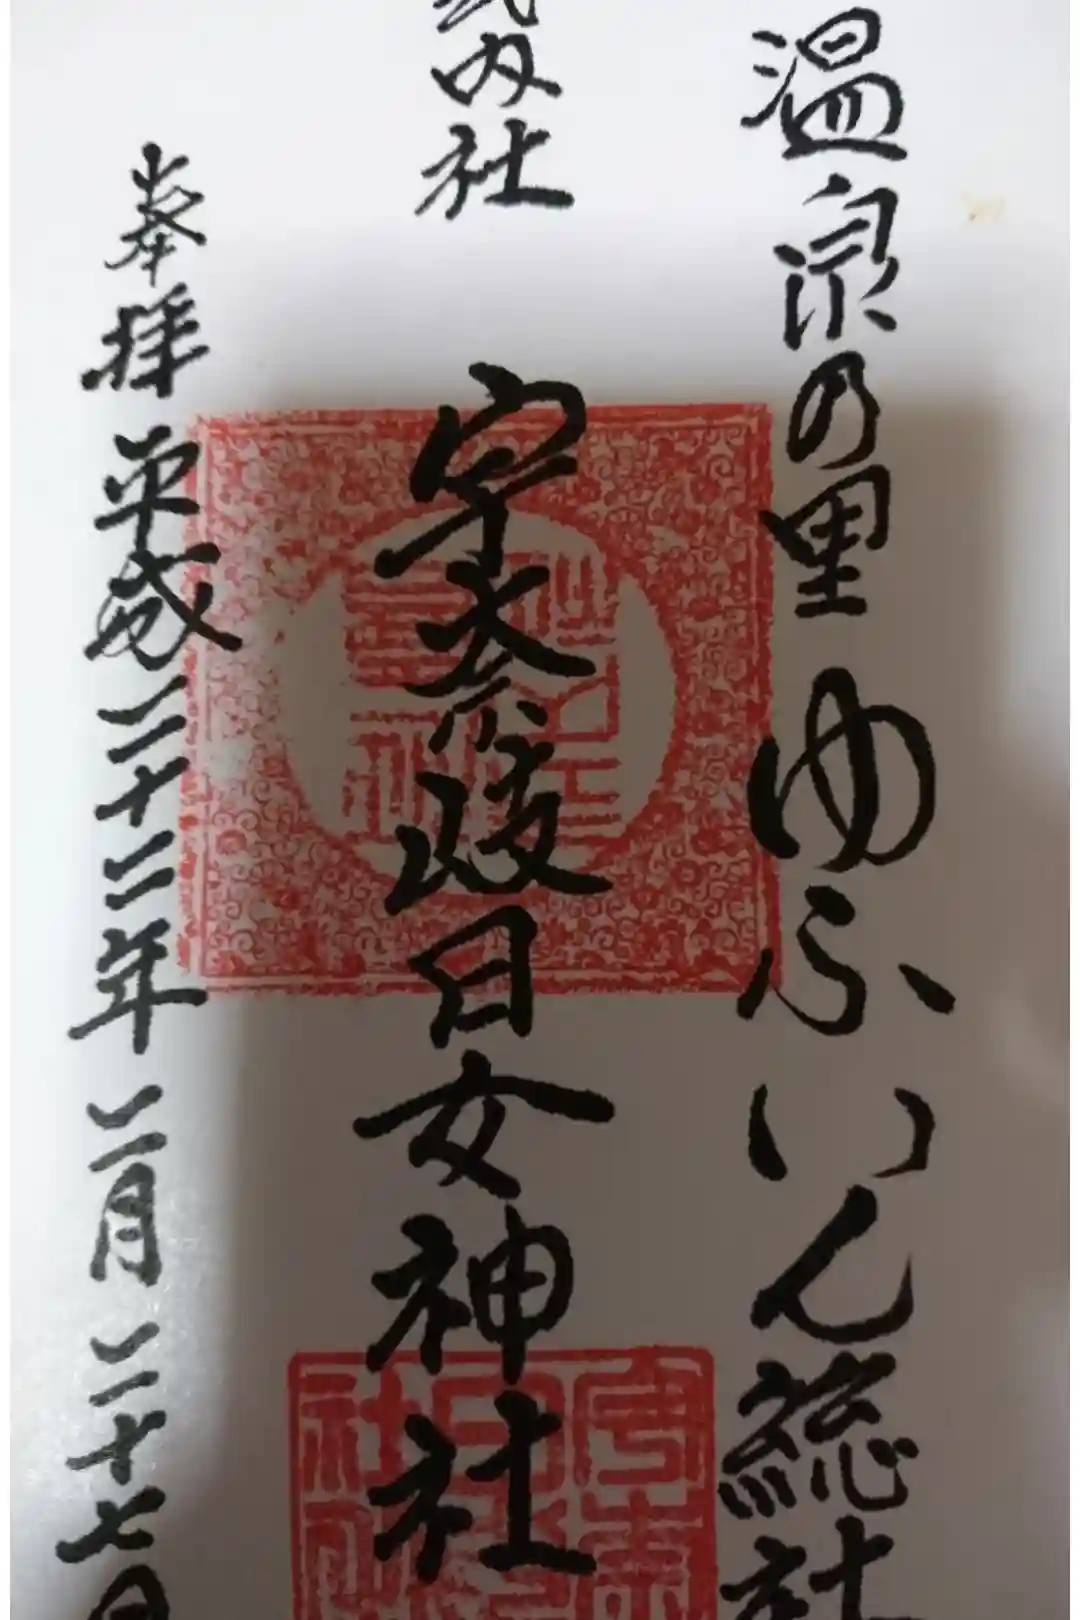 温泉の里 ゆふいん総社
式内社
宇奈岐日女神社
奉拝 平成二十二年 二月 二十七日